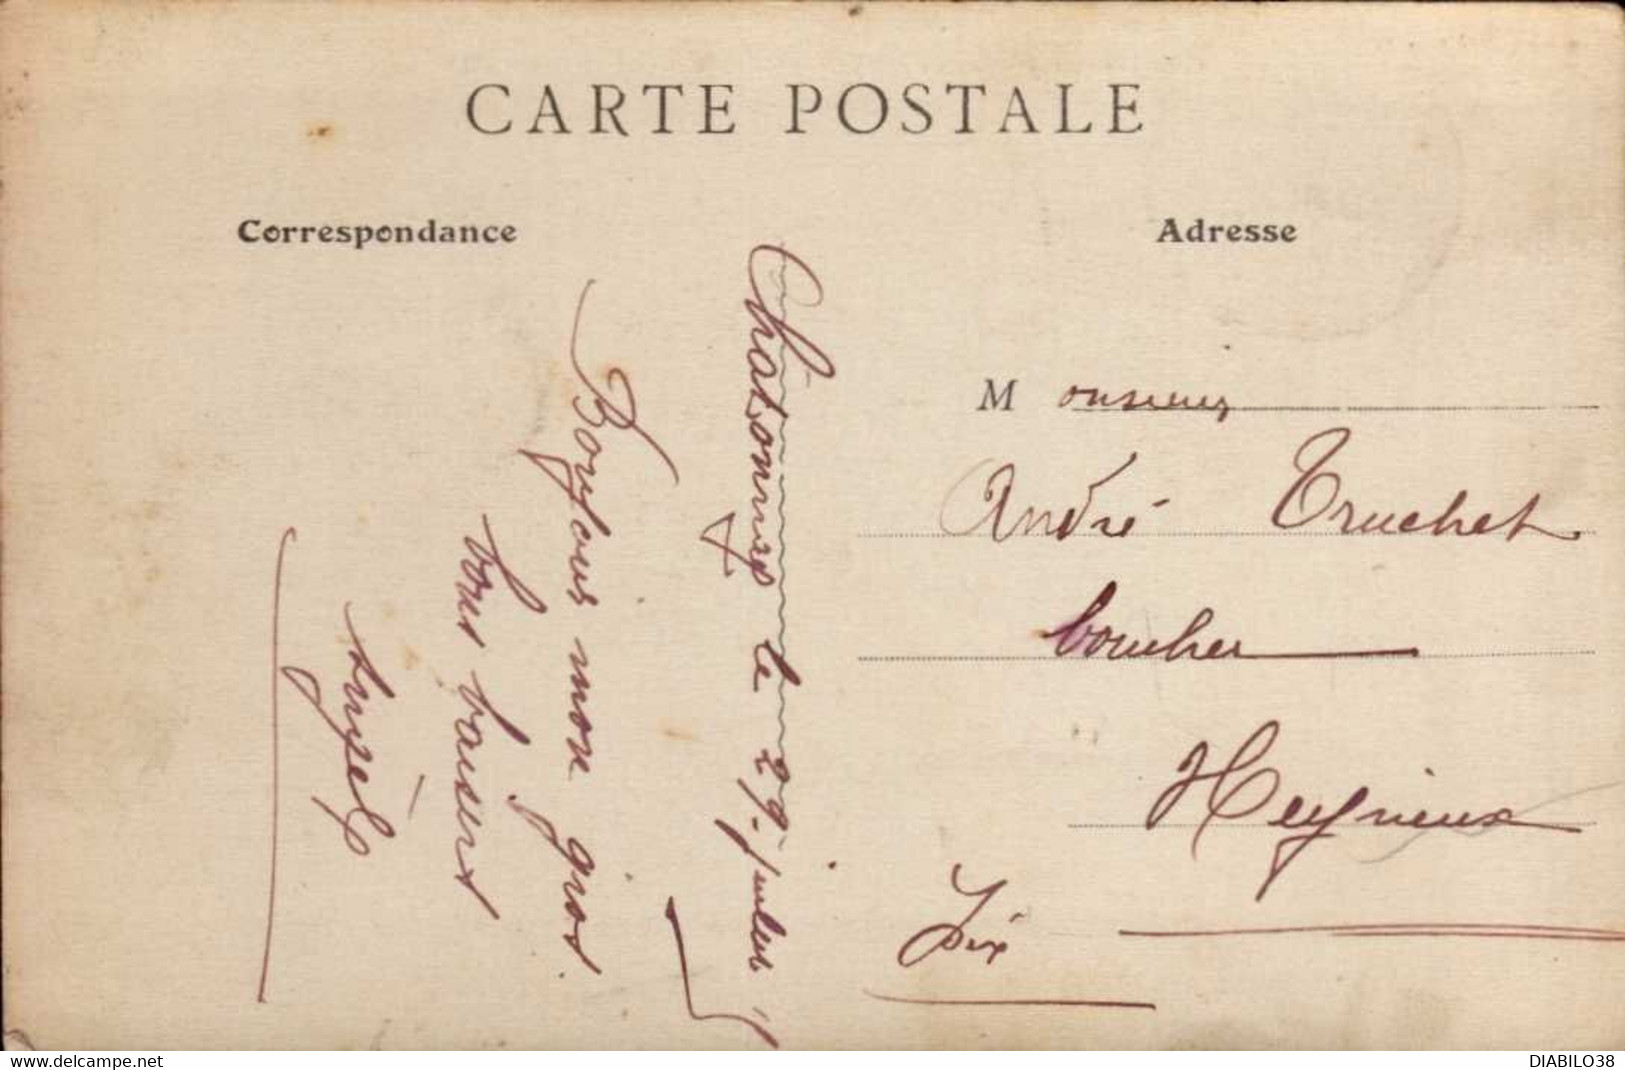 CARTE POSTALE
Correspondance
Adresse
Chatonnay le 29 juillet
Bonjour mon gros
bons baisers
Monsieur
André Truchet
boucher
Heyrieux
www.delcampe.net
DIABILO38